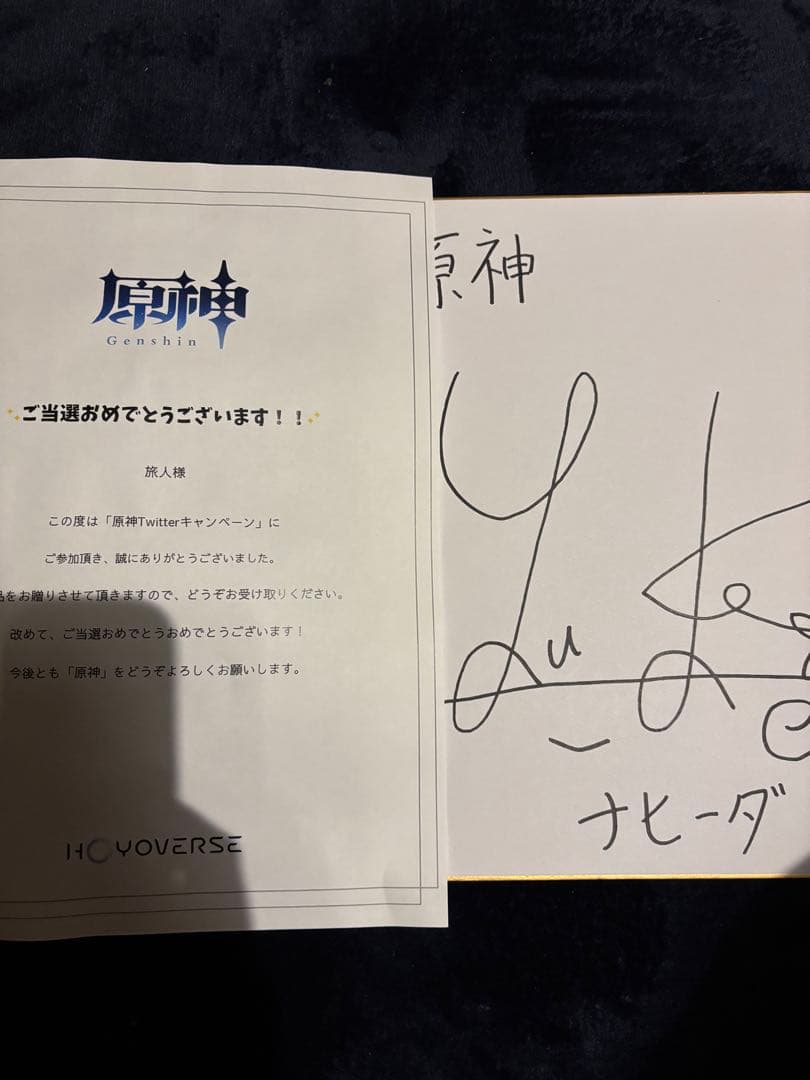 原神
Genshin
✨ご当選おめでとうございます！！✨
旅人様
この度は「原神Twitterキャンペーン」に
ご参加頂き、誠にありがとうございました。
品をお贈りさせて頂きますので、どうぞお受け取りください。
改めて、ご当選おめでとうおめでとうございます！
今後とも「原神」をどうぞよろしくお願いします。
HOYOVERSE
原神
ナヒーダ